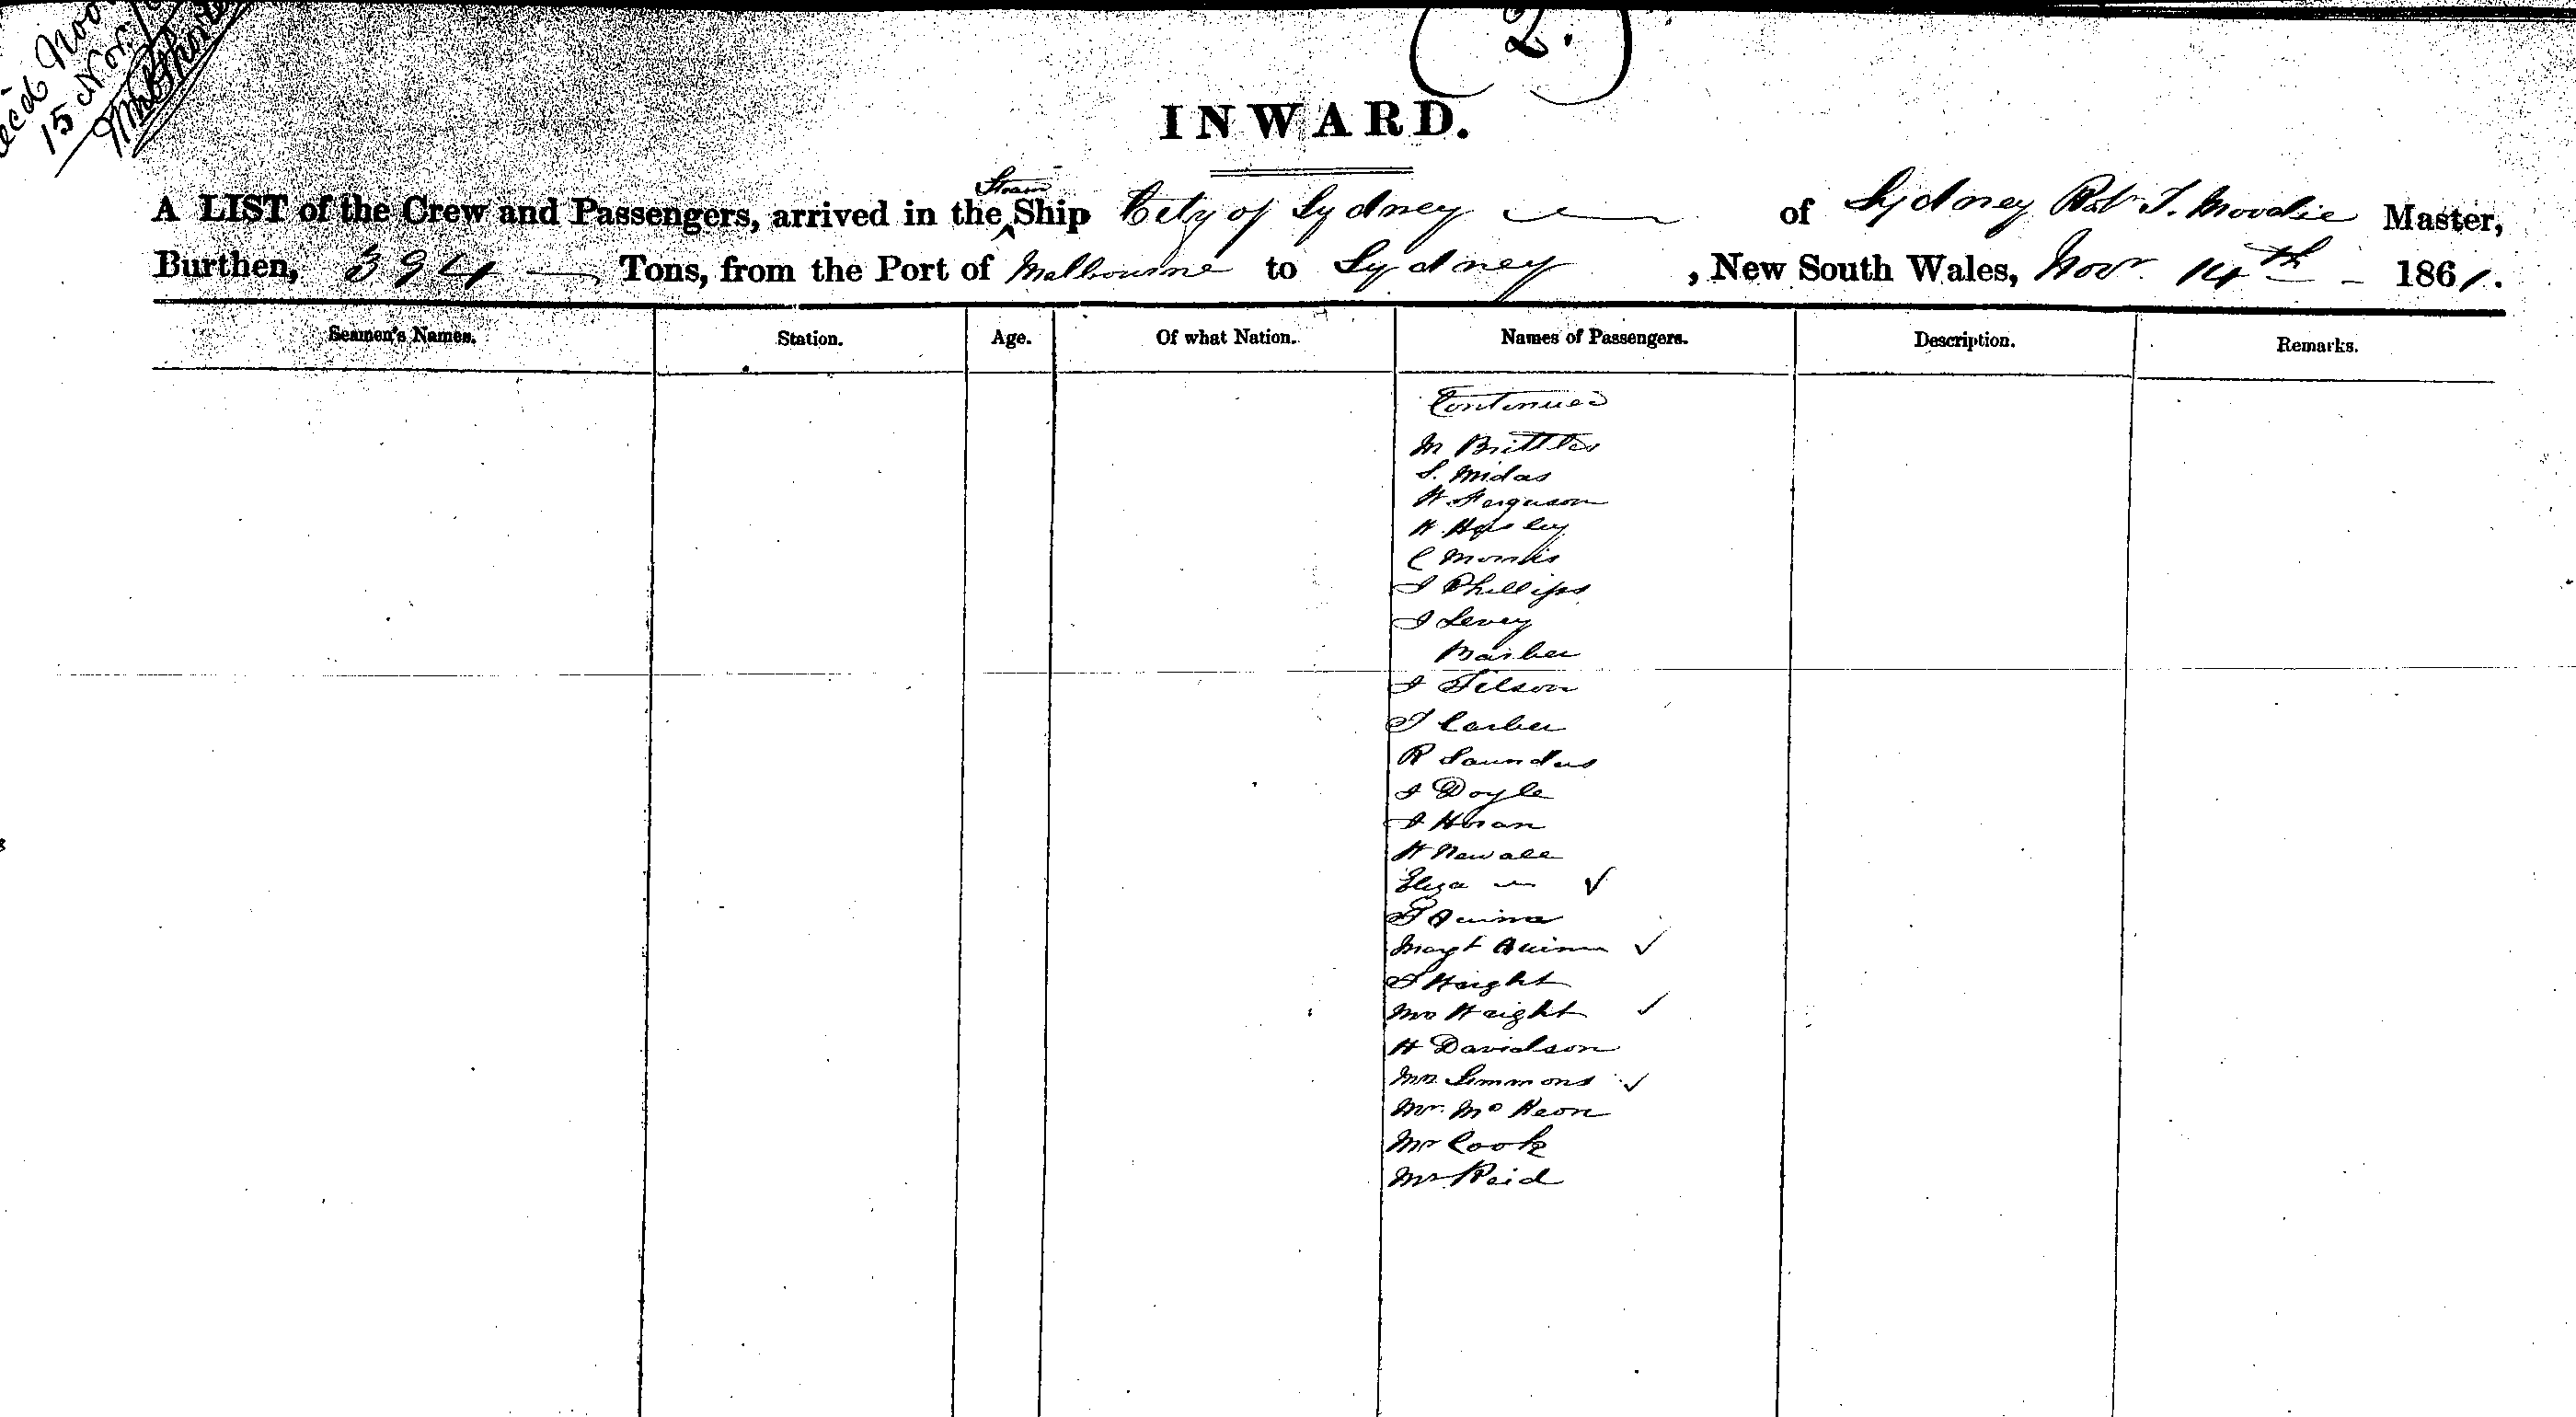 (2.)
15 Nov
INWARD.
A LIST of the Crew and Passengers, arrived in the Steam Ship City of Sydney of Sydney Robt. T. Moodie Master,
Burthen, 394 Tons, from the Port of Melbourne to Sydney, New South Wales, Novr. 14th 1861.
Seamen's Names. Station. Age. Of what Nation. Names of Passengers. Description. Remarks.
Continued
M Brittles
S. Midas
H Ferguson
H
C Morris
J Phillips
J Levey
Barber
J Telson
T Carber
R Saunders
J Doyle
J Horan
H Newall
Eliza
T Quinn
Margt Quinn
T Haight
Mrs Haight
H Davidson
Mrs Simmons
Mr. Mc Keon
Mr Cook
Mr Reid